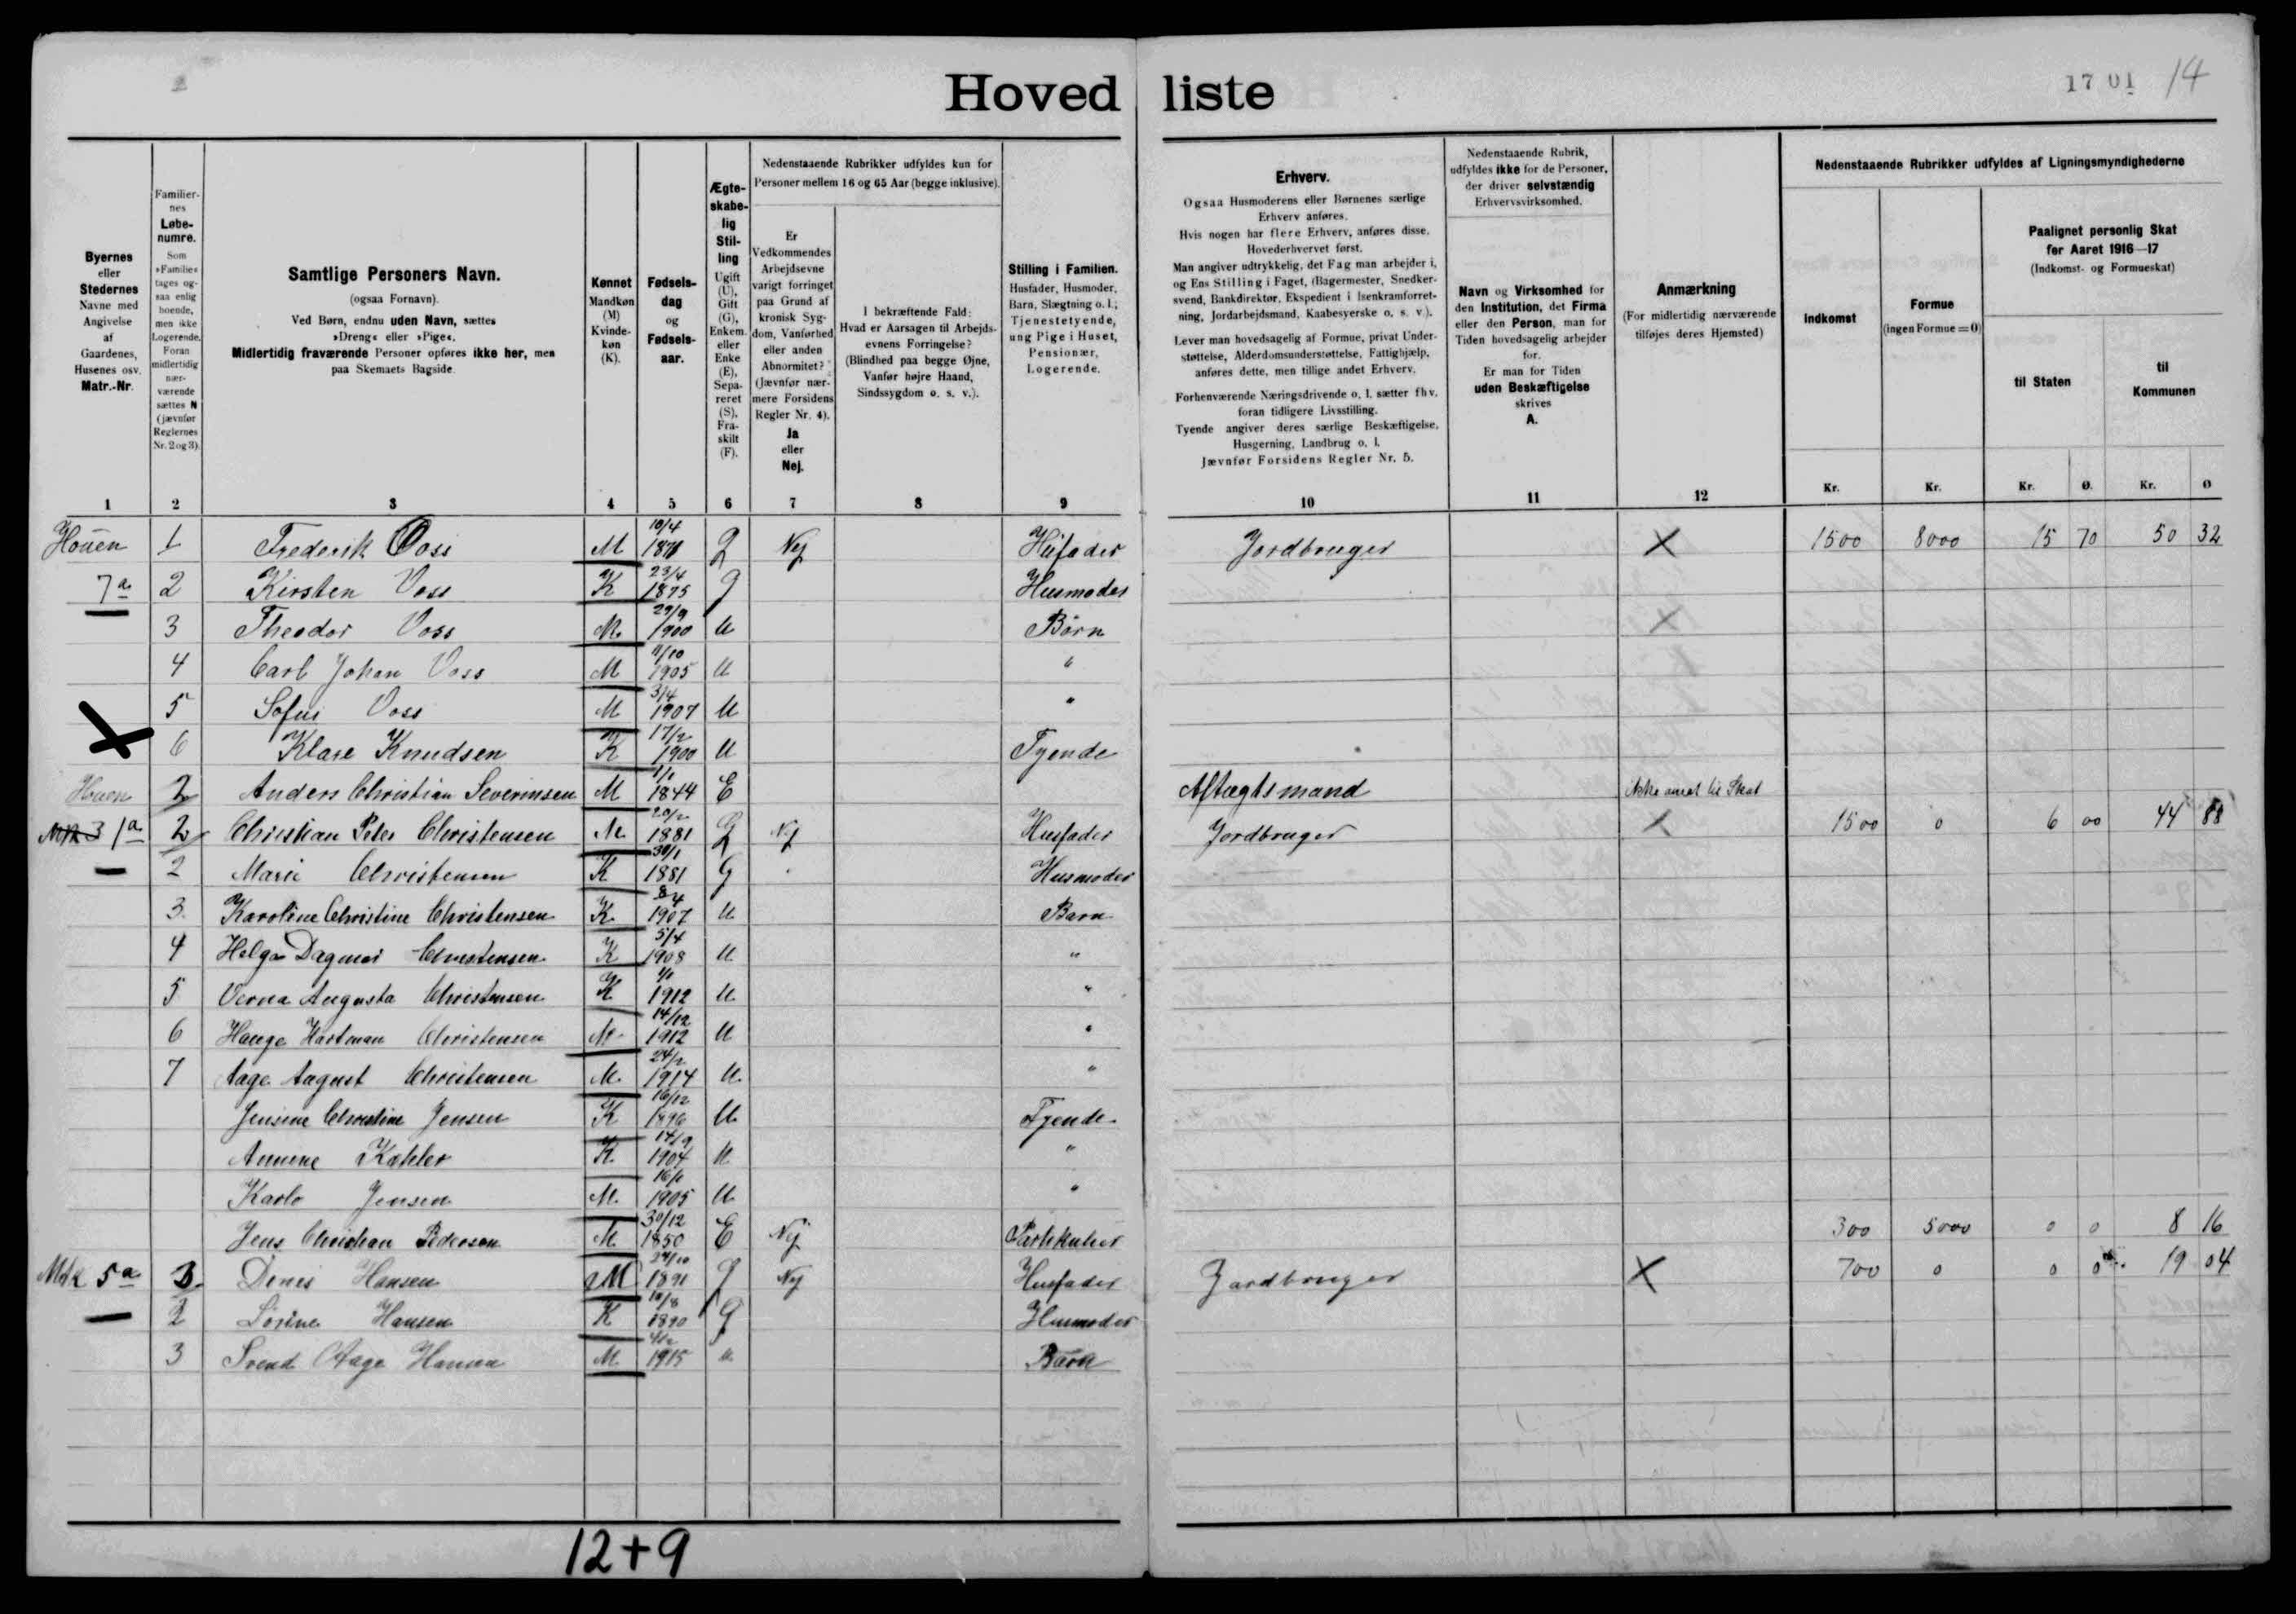 Hoved liste
17 01 14
Byernes
eller
Stedernes
Navne med
Angivelse
af
Gaardenes,
Husenes osv.
Matr.-Nr.
Familier-
nes
Løbe-
numre.
Som
»Familie«
tages og-
saa enlig
boende,
men ikke
Logerende.
Foran
midlertidig
nær-
værende
sættes N
(jævnfør
Reglernes
Nr. 2 og 3).
Samtlige Personers Navn.
(ogsaa Fornavn).
Ved Børn, endnu uden Navn, sættes
»Dreng« eller »Pige«.
Midlertidig fraværende Personer opføres ikke her, men
paa Skemaets Bagside.
Kønnet
Mandkøn
(M)
Kvinde-
køn
(K).
Fødsels-
dag
og
Fødsels-
aar.
Ægte-
skabe-
lig
Stil-
ling
Ugift
(U),
Gift
(G),
Enkem.
eller
Enke
(E),
Sepa-
reret
(S),
Fra-
skilt
(F).
Nedenstaaende Rubrikker udfyldes kun for
Personer mellem 16 og 65 Aar (begge inklusive).
Er
Vedkommendes
Arbejdsevne
varigt forringet
paa Grund af
kronisk Syg-
dom, Vanførhed
eller anden
Abnormitet?
(Jævnfør nær-
mere Forsidens
Regler Nr. 4).
Ja
eller
Nej.
I bekræftende Fald:
Hvad er Aarsagen til Arbejds-
evnens Forringelse?
(Blindhed paa begge Øjne,
Vanfør højre Haand,
Sindssygdom o. s. v.).
Stilling i Familien.
Husfader, Husmoder,
Barn, Slægtning o. l.;
Tjenestetyende,
ung Pige i Huset,
Pensionær,
Logerende.
Erhverv.
Ogsaa Husmoderens eller Børnenes særlige
Erhverv anføres.
Hvis nogen har flere Erhverv, anføres disse.
Hovederhvervet først.
Man angiver udtrykkelig, det Fag man arbejder i,
og Ens Stilling i Faget, (Bagermester, Snedker-
svend, Bankdirektør, Ekspedient i Isenkramforret-
ning, Jordarbejdsmand, Kaabesyerske o. s. v.).
Lever man hovedsagelig af Formue, privat Under-
støttelse, Alderdomsunderstøttelse, Fattighjælp,
anføres dette, men tillige andet Erhverv.
Forhenværende Næringsdrivende o. l. sætter fhv.
foran tidligere Livsstilling.
Tyende angiver deres særlige Beskæftigelse,
Husgerning, Landbrug o. l.
Jævnfør Forsidens Regler Nr. 5.
Nedenstaaende Rubrik,
udfyldes ikke for de Personer,
der driver selvstændig
Erhvervsvirksomhed.
Navn og Virksomhed for
den Institution, det Firma
eller den Person, man for
Tiden hovedsagelig arbejder
for.
Er man for Tiden
uden Beskæftigelse
skrives
A.
Anmærkning
(For midlertidig nærværende
tilføjes deres Hjemsted)
Nedenstaaende Rubrikker udfyldes af Ligningsmyndighederne
Indkomst
Formue
(ingen Formue = 0)
Paalignet personlig Skat
for Aaret 1916—17
(Indkomst- og Formueskat)
til Staten
til
Kommunen
Kr. Kr. Kr. Ø. Kr. Ø
1 2 3 4 5 6 7 8 9 10 11 12
Houen 1 Frederik Voss M 10/4 1871 G Nej Husfader Jordbruger X 1500 8000 15 70 50 32
7a 2 Kirsten Voss K 23/4 1875 G Husmoder
3 Theodor Voss M. 29/9 1900 U Börn X
4 Carl Johan Voss M /10 1905 U "
5 Sofus Voss M 3/4 1907 U "
X 6 Klare Knudsen K 17/2 1900 U Tyende
Houen 2 Anders Christian Severinsen M 1/1 1844 E Aftægtsmand Ikke ansat til Skat
3 1a 2 Christian Peter Christensen M. 20/2 1881 G Nej Husfader Jordbruger X 1500 0 6 00 44 88
2 Marie Christensen K 30/1 1881 G Husmoder
3. Karoline Christine Christensen K. 8/4 1907 U Barn
4 Helga Dagmar Christensen K 5/4 1908 U "
5 Verna Augusta Christensen K 1912 U "
6 Hauge Hartman Christensen M 14/12 1912 U "
7 Aage August Christensen M. 24/2 1914 U. "
Jensine Christine Jensen K 16/12 1896 U. Tyende
Annine Kahler K. 14/9 1904 U "
Karlo Jensen M. 16/1 1905 U "
Jens Christian Pedersen M 30/12 1850 E Nej Partikulier 300 5000 0 0 8 16
Mtk 5a 3. Denis Hansen M 24/10 1891 G Nej Husfader Jordbruger X 700 0 0 0 19 04
2 Sørine Hansen K 10/8 1890 G Husmoder
3 Svend Aage Hansen M 4/2 1915 u. Barn
12+9